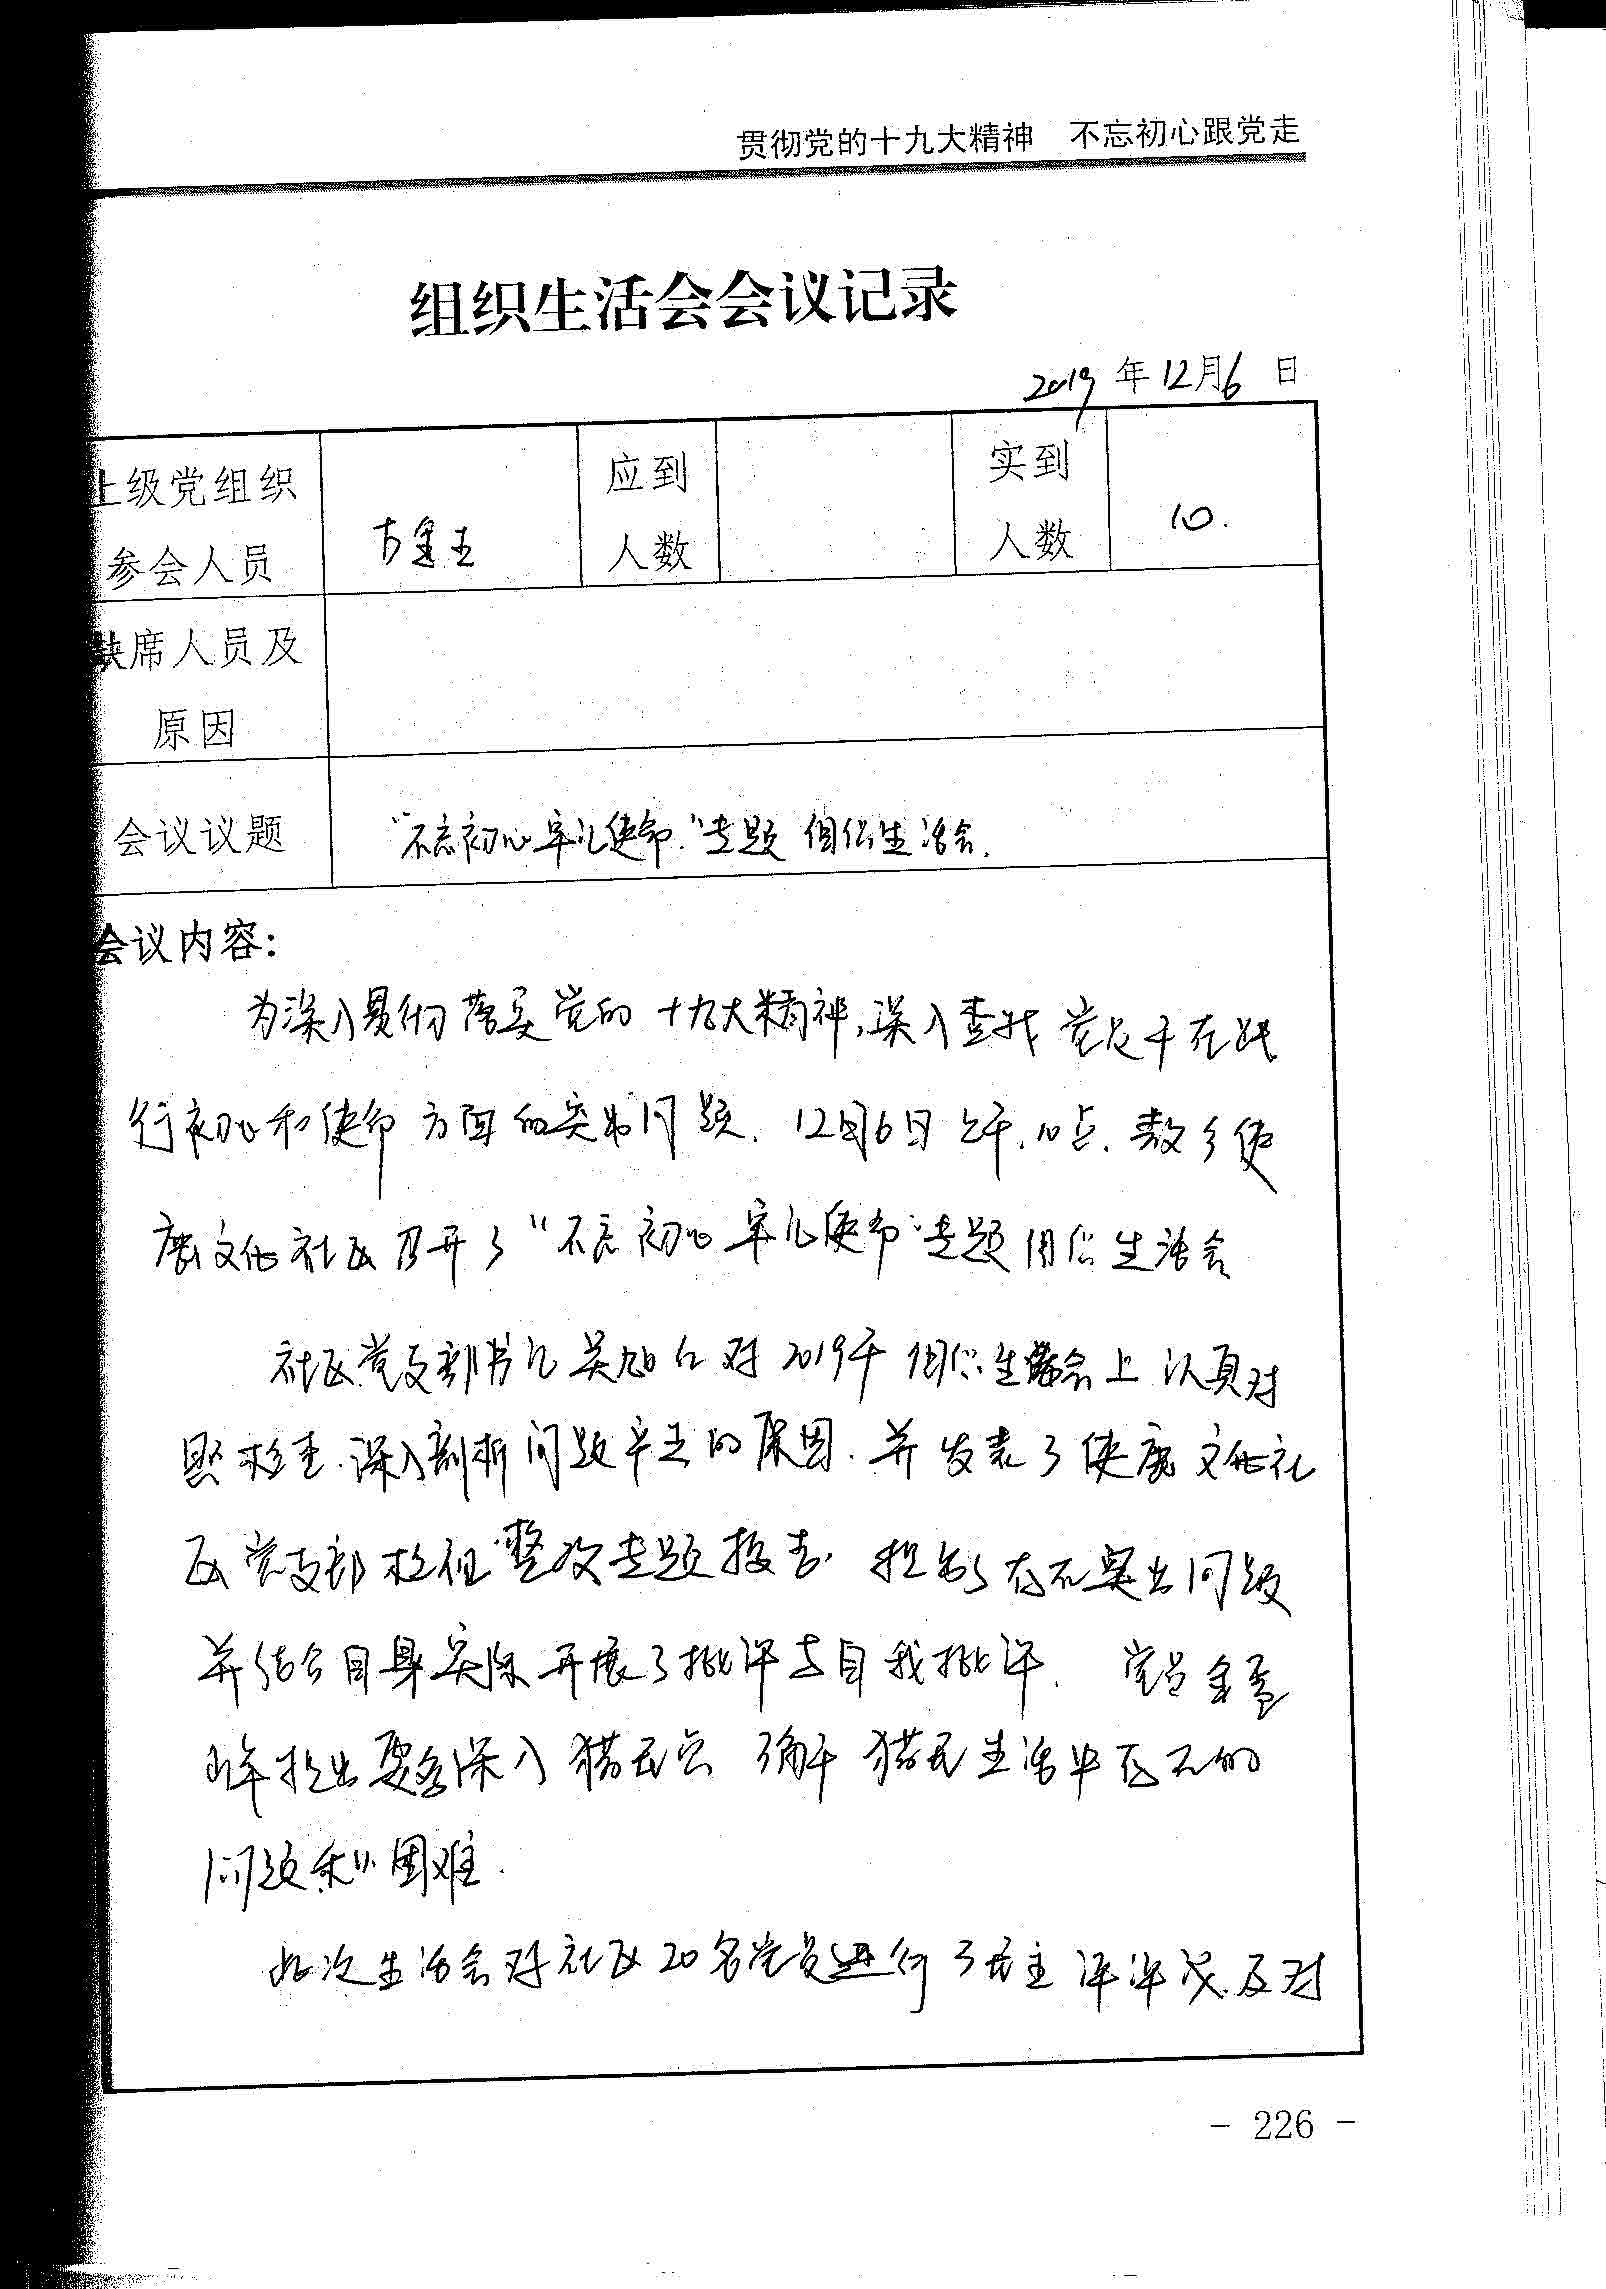 贯彻党的十九大精神 不忘初心跟党走
组织生活会会议记录
2019 年 12 月 6 日
上级党组织
参会人员
应到
人数
实到
人数
10.
缺席人员及
原因
会议议题
"不忘初心牢记使命"专题组织生活会.
会议内容:
为深入贯彻落实党的十九大精神,深入查找党员干在践
行初心和使命方面的突出问题. 12月6日上午.10点. 敖乡使
鹿文化社区召开了"不忘初心牢记使命"专题组织生活会
社区党支部书记 对2019年组织生活会上认真对
照检查.深入剖析问题产生的原因.并发表了使鹿文化社
区党支部检查整改专题报告. 存在突出问题
并结合自身实际开展了批评与自我批评. 党员
提出要多深入猎民点 了解猎民生活中存在的
问题和困难.
此次生活会对社区20名党员进行了民主评评议及对
- 226 -